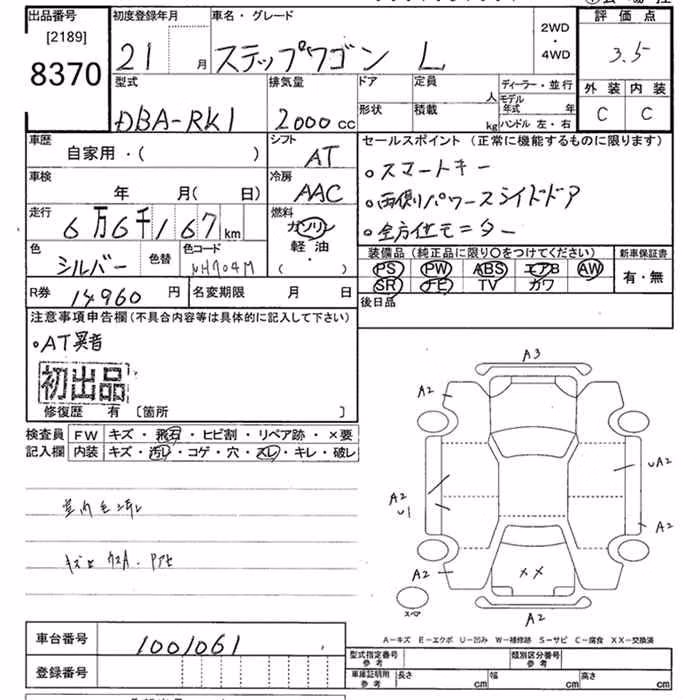 出品番号
[2189]
8370
初度登録年月
21 月
車名・グレード
ステップワゴン L
2WD
・
4WD
評価点
3.5
外装 内装
C C
型式
DBA-RK1
排気量
2000 cc
ドア
形状
定員
人
積載
kg
ディーラー・並行
モデル年式 年
ハンドル 左・右
車歴
自家用・( )
シフト
AT
車検
年 月( 日)
冷房
AAC
走行
6万6千167km
燃料
ガソリン
軽・油
( )
色
シルバー
色替
色コード
NH704M
セールスポイント (正常に機能するものに限ります)
。スマートキー
。両側パワースライドドア
。全方位モニター
装備品 (純正品に限り○をつけてください)
PS PW ABS エアB AW
SR ナビ TV カワ
新車保証書
有・無
R券 14960 円
名変期限 月 日
後日品
注意事項申告欄(不具合内容等は具体的に記入して下さい)
。AT異音
初出品
修復歴 有 [箇所 ]
検査員
記入欄
FW キズ・飛石・ヒビ割・リペア跡・×要
内装 キズ・汚レ・コゲ・穴・スレ・キレ・破レ
A3
A2
A2
U1
UA2
A2
A2
XX
A2
スペア
車台番号
1001061
登録番号
A−キズ E−エクボ U−凹み W−補修跡 S−サビ C−腐食 XX−交換済
型式指定番号
参考
類別区分番号
参考
車庫証明用
参考
長さ cm 幅 cm 高さ cm